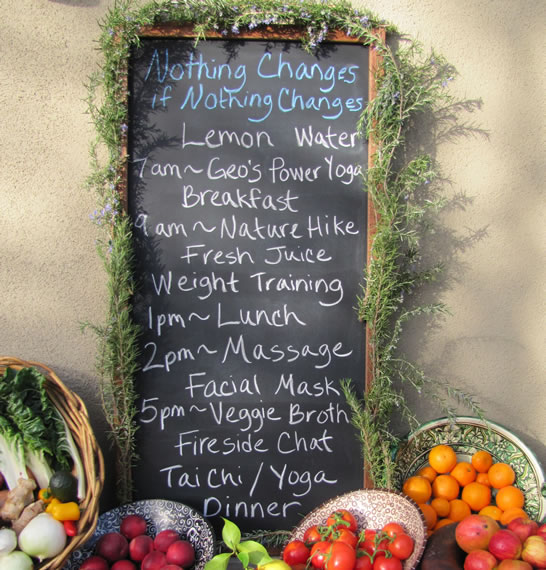 Nothing Changes
if Nothing Changes
Lemon Water
7am~Geo's Power Yoga
Breakfast
9am~Nature Hike
Fresh Juice
Weight Training
1pm~Lunch
2pm~Massage
Facial Mask
5pm~Veggie Broth
Fireside Chat
Taichi/Yoga
Dinner